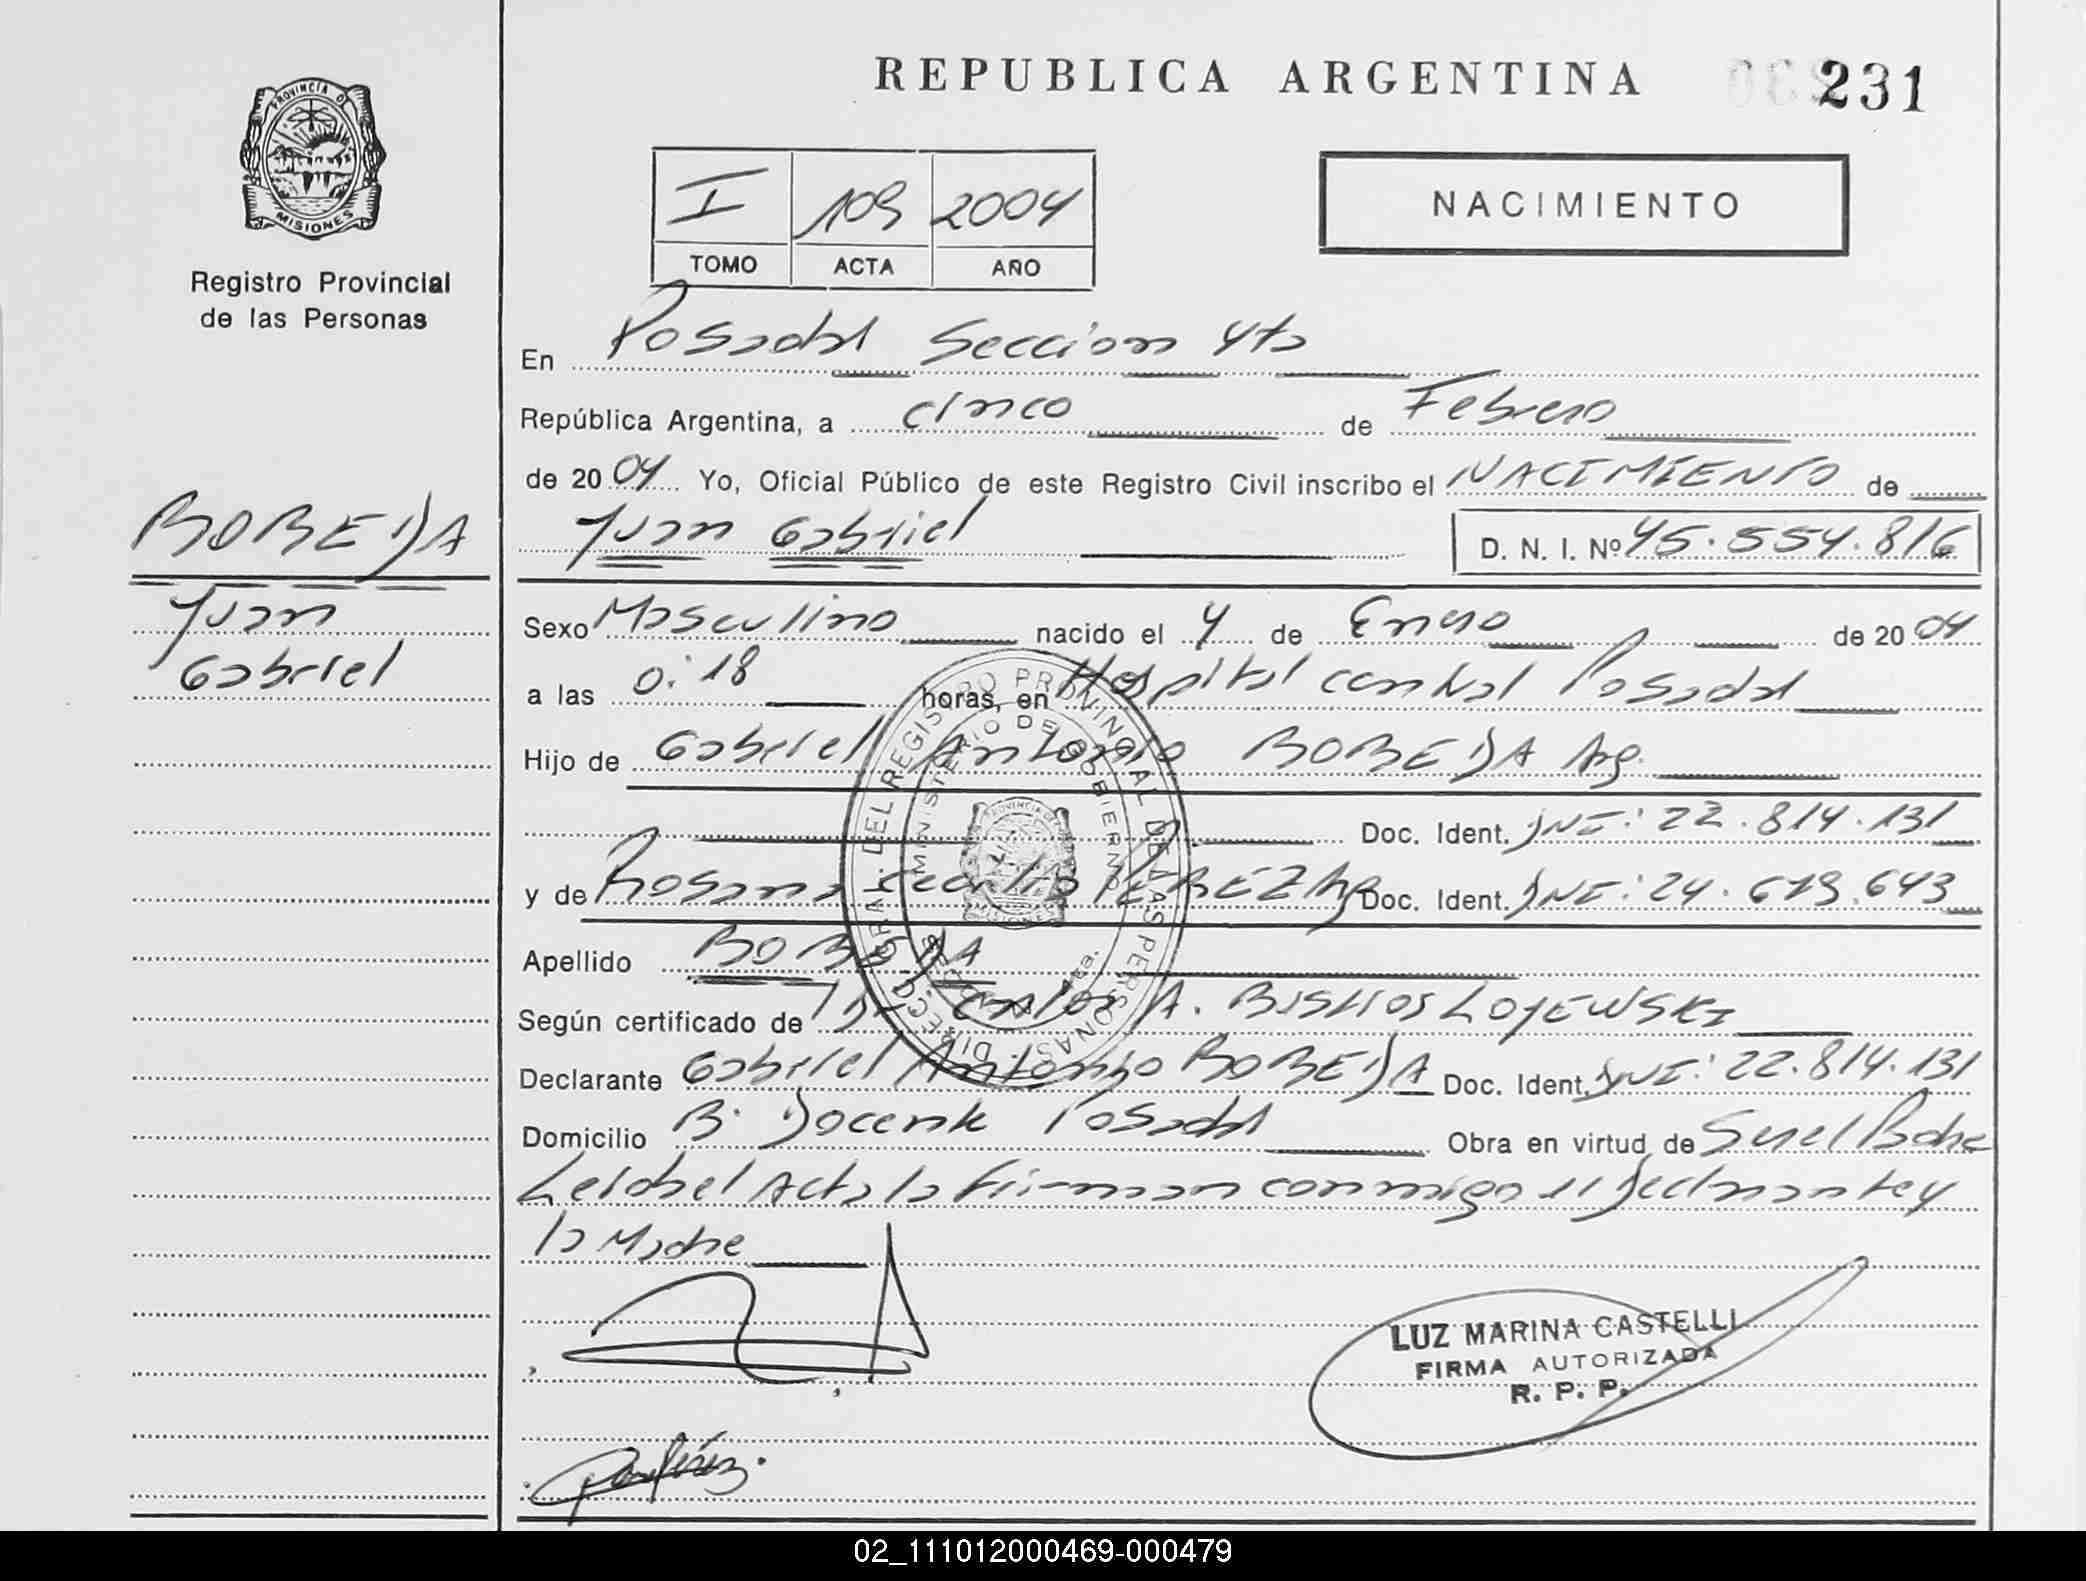 REPUBLICA ARGENTINA
231
PROVINCIA D
MISIONES
Registro Provincial
de las Personas
I 109 2004
TOMO ACTA AÑO
NACIMIENTO
En Posadas Seccion 4ta
República Argentina, a cinco de Febrero
de 2004 Yo, Oficial Público de este Registro Civil inscribo el NACIMIENTO de
Juan Gabriel D. N. I. Nº 45.554.816
BOBEDA
Juan
Gabriel
Sexo Masculino nacido el 4 de Enero de 2004
a las 0:18 horas, en Hospital central Posadas
Hijo de Gabriel Antonio BOBEDA Arg.
Doc. Ident. DNI: 22.814.131
y de Rosana PEREZ Arg Doc. Ident. DNI: 24.679.643
Apellido BOBEDA
Según certificado de Dr. Carlos A.
Declarante Gabriel Antonio BOBEDA Doc. Ident. DNI: 22.814.131
Domicilio B. Docente Posadas Obra en virtud de Ser el Padre
Leida el Acta la firman conmigo el declarante y
la Madre
DIRECC. GRAL. DEL REGISTRO PROVINCIAL DE LAS PERSONAS
MINISTERIO DE GOBIERNO
PROVINCIA
MISIONES
LUZ MARINA CASTELLI
FIRMA AUTORIZADA
R. P. P.
02_111012000469-000479